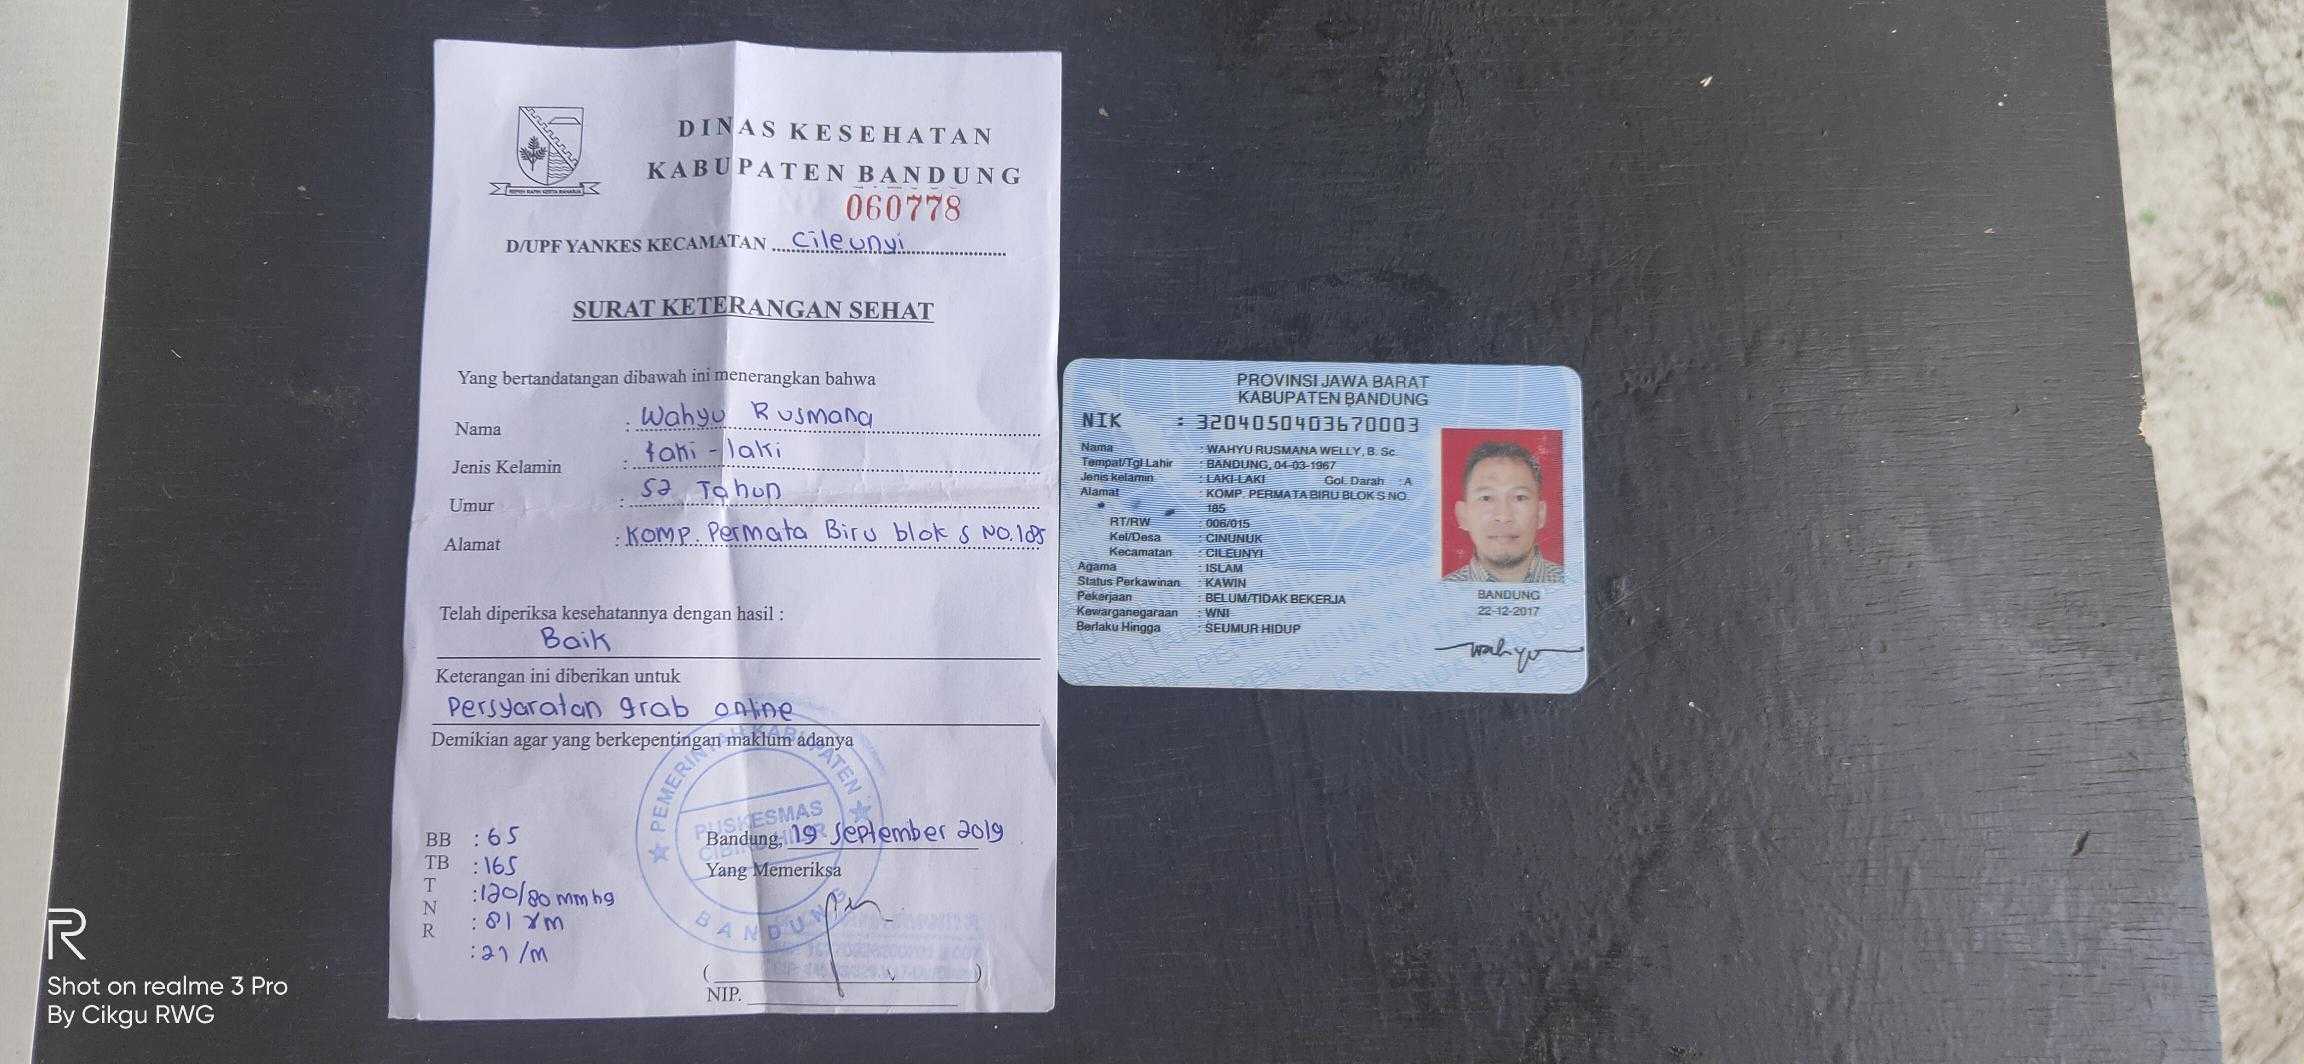 DINAS KESEHATAN
KABUPATEN BANDUNG
060778
D/UPF YANKES KECAMATAN Cileunyi
SURAT KETERANGAN SEHAT
Yang bertandatangan dibawah ini menerangkan bahwa
Nama : Wahyu Rusmana
Jenis Kelamin : laki-laki
Umur : 52 Tahun
Alamat : Komp. Permata Biru blok S NO.185
Telah diperiksa kesehatannya dengan hasil :
Baik
Keterangan ini diberikan untuk
Persyaratan grab online
Demikian agar yang berkepentingan maklum adanya
PEMERINTAH KABUPATEN
PUSKESMAS
BANDUNG
BB : 65
TB : 165
T : 120/80 mmhg
N : 81 x/m
R : 21 /m
Bandung, 19 September 2019
Yang Memeriksa
NIP.
PROVINSI JAWA BARAT
KABUPATEN BANDUNG
NIK : 3204050403670003
Nama : WAHYU RUSMANA WELLY, B. Sc
Tempat/Tgl Lahir : BANDUNG, 04-03-1967
Jenis kelamin : LAKI-LAKI Gol. Darah : A
Alamat : KOMP. PERMATA BIRU BLOK S NO.
185
RT/RW : 006/015
Kel/Desa : CINUNUK
Kecamatan : CILEUNYI
Agama : ISLAM
Status Perkawinan : KAWIN
Pekerjaan : BELUM/TIDAK BEKERJA
Kewarganegaraan : WNI
Berlaku Hingga : SEUMUR HIDUP
BANDUNG
22-12-2017
Wahyu
Shot on realme 3 Pro
By Cikgu RWG